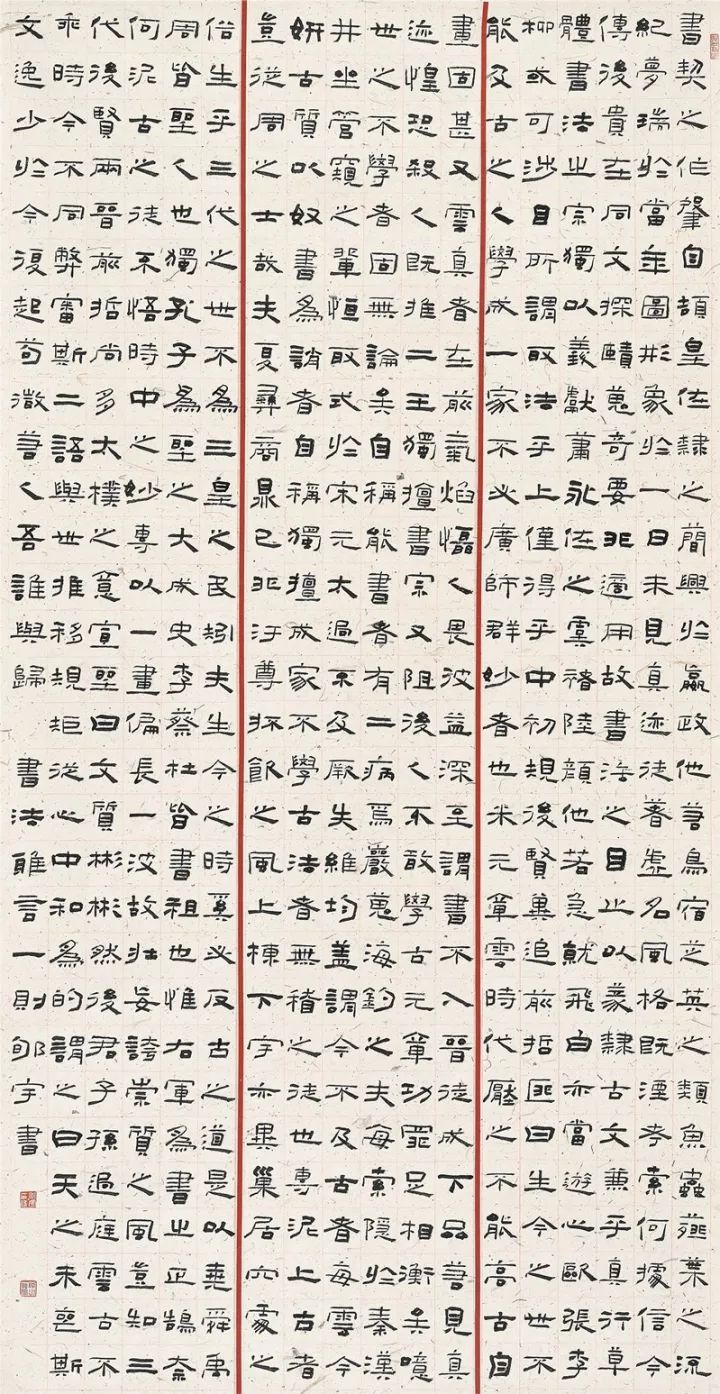 書契之作肇自頡皇佐隸之簡興於嬴政他若鳥宿芝英之類魚蟲薤葉之流
紀夢瑞於當年圖形象於一日未見真迹徒著虛名風格既湮考索何據信今
傳後貴在同文探賾蒐奇要非適用故書法之目止以篆隸古文兼乎真行草
體書法之宗獨以羲獻蕭永佐之虞褚陸顏他若急就飛白亦當遊心歐張李
柳或可涉目所謂取法乎上僅得乎中初規後賢冀追前哲匪曰生今之世不
能及古之人學成一家不必廣師群妙者也米元章雲時代壓之不能高古自
畫固甚又雲真者在前氣焰懾人畏彼益深至謂書不入晉徒成下品若見真
迹惶恐殺人既推二王獨擅書宗又阻後人不敢學古元章功罪足相衡矣噫
世之不學者固無論矣自稱能書者有二病焉嚴蒐海釣之夫每索隱於秦漢
井坐管窺之輩恒取式於宋元太過不及厥失維均蓋謂今不及古者每雲今
妍古質以奴書為誚者自稱獨擅成家不學古法者無稽之徒也專泥上古者
豈從周之士哉夫夏彝商鼎已非汙尊抔飲之風上棟下宇亦異巢居穴處之
俗生乎三代之世不為三皇之民矧夫生今之時奚必反古之道是以堯舜禹
周皆聖人也獨孔子為聖之大成史李蔡杜皆書祖也惟右軍為書之正鵠奈
何泥古之徒不悟時中之妙專以一畫偏長一波故壯妄誇崇質之風豈知三
代後賢兩晉前哲尚多太樸之意宣聖曰文質彬彬然後君子孫過庭雲古不
乖時今不同弊審斯二語與世推移規矩從心中和為的謂之曰天之未喪斯
文逸少於今復起苟微若人吾誰與歸 書法雅言一則郇宇書